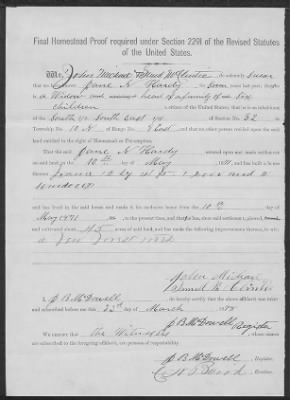 Final Homestead Proof required under Section 2291 of the Revised Statutes
of the United States.
We, John Michael Samuel McClintic do solemnly swear
that we Jane N Hardy for years last past; that
a Widow and head of a family of six
children a citizen of the United States; that is an inhabitant
of the South 1/2 South East 1/4 of Section No. 32
Township No. 10 N of Range No. and that no other person resided upon the said
land entitled to the right of Homestead or Pre-emption.
That the said Jane N Hardy entered upon and made settlement
on said land on the 10th day of May, 1871 and has built a house
thereon frame 12 by
windows
and has lived in the said house and made it his exclusive home from the 10th day of
May 1871 to the present time, and that he has, since said settlement, plowed,
and cultivated about 45 acres of said land, and has made the following improvements thereon, to wit:
a few forest trees
John Michael
I, J B McDowell do hereby certify that the above affidavit was taken
and subscribed before me this 23rd day of March 1878
J B McDowell Register
We certify that The Witnesses
are subscribed to the foregoing affidavit, are persons of respectability.
J B McDowell, Register.
, Receiver.